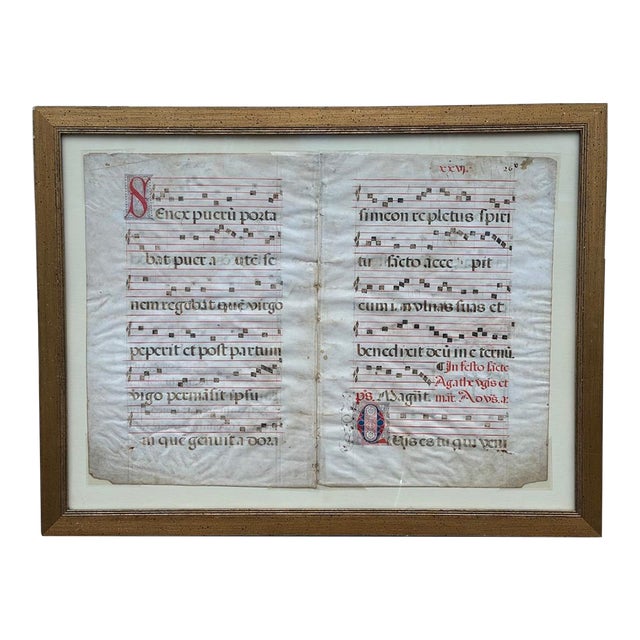 Senex puerū porta
bat puer a utē se
nem regebat quē virgo
peperit et post partum
virgo permāsit ipsū
quē genuit adora
xxvj. 26
simeon repletus spiri
tu sācto acce pit
eum in vlnas suas et
benedixit deū in eternū.
In festo sācte
Agathe vgīs et
ps. Magūt. mar. Ad vs. a:
Qvis es tu qui veni